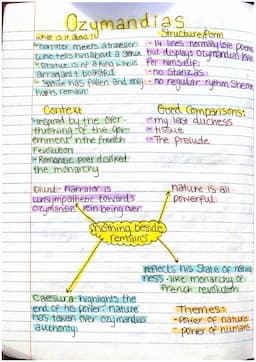 Ozymandias
What is it about?
- narrator meets a traveller
who tells him about a statue
- Statue is of a king who is
arrogant + boastful
- Statue has fallen and only
ruins remain
Structure/form
- 14 lines = normally love poem
but displays ozymandias' love
for himself
- no stanzas
- no regular rythm scheme
Context
- inspired by the over-
throwing of the gov-
ernment in the french
revolution
- Romantic poet disliked
the monarchy
Good Comparisons:
- my last duchess
- tissue
- The prelude
blunt - narrator is
unsympathetic towards
Ozymandias' rein being over
nature is all
powerful
"nothing beside
remains"
reflects his state of nothing
ness - like monarchy of
french revolution
Caesura - highlights the
end of his power; nature
has taken over ozymandias'
authority.
Themes:
- Power of nature
- power of humans